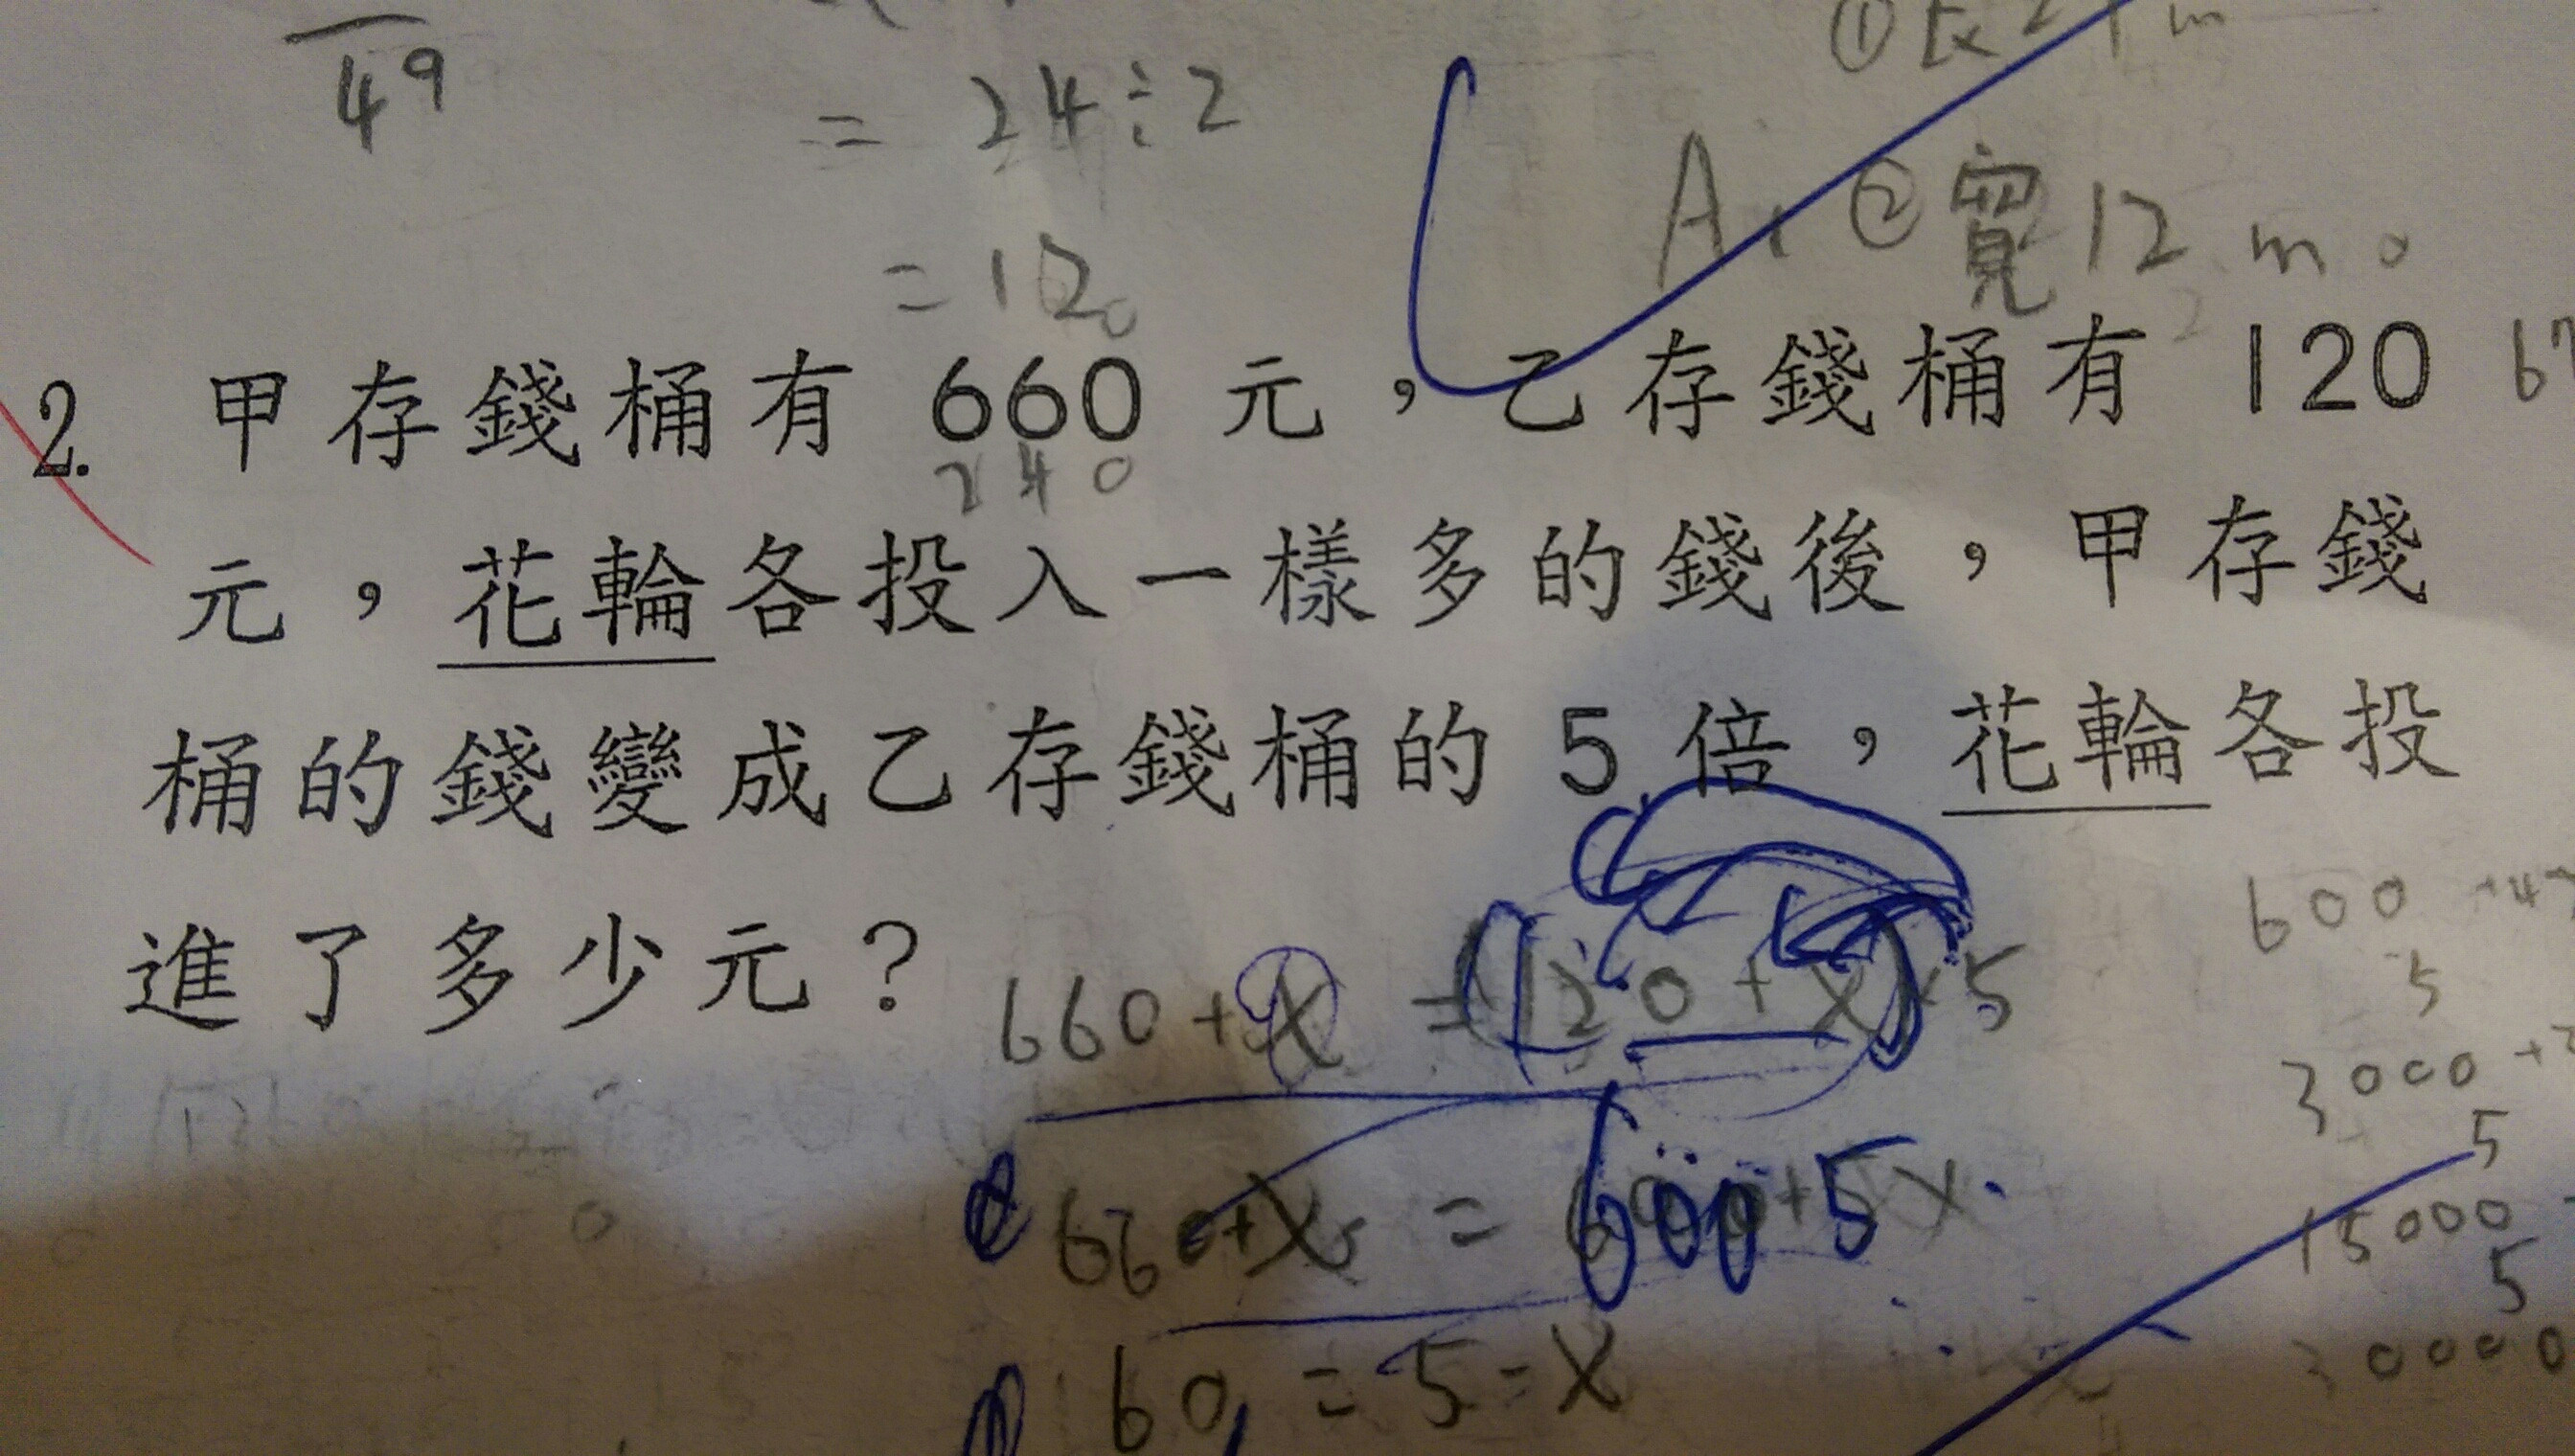 49
= 24÷2
A: ② 寬 12 m。
= 12。
2. 甲存錢桶有 660 元，乙存錢桶有 120
240
元，花輪各投入一樣多的錢後，甲存錢
桶的錢變成乙存錢桶的 5 倍，花輪各投
進了多少元？
660+X = (120+X)×5
660+X = 600+5X
60 = 5-X
600
5
3000
5
15000
5